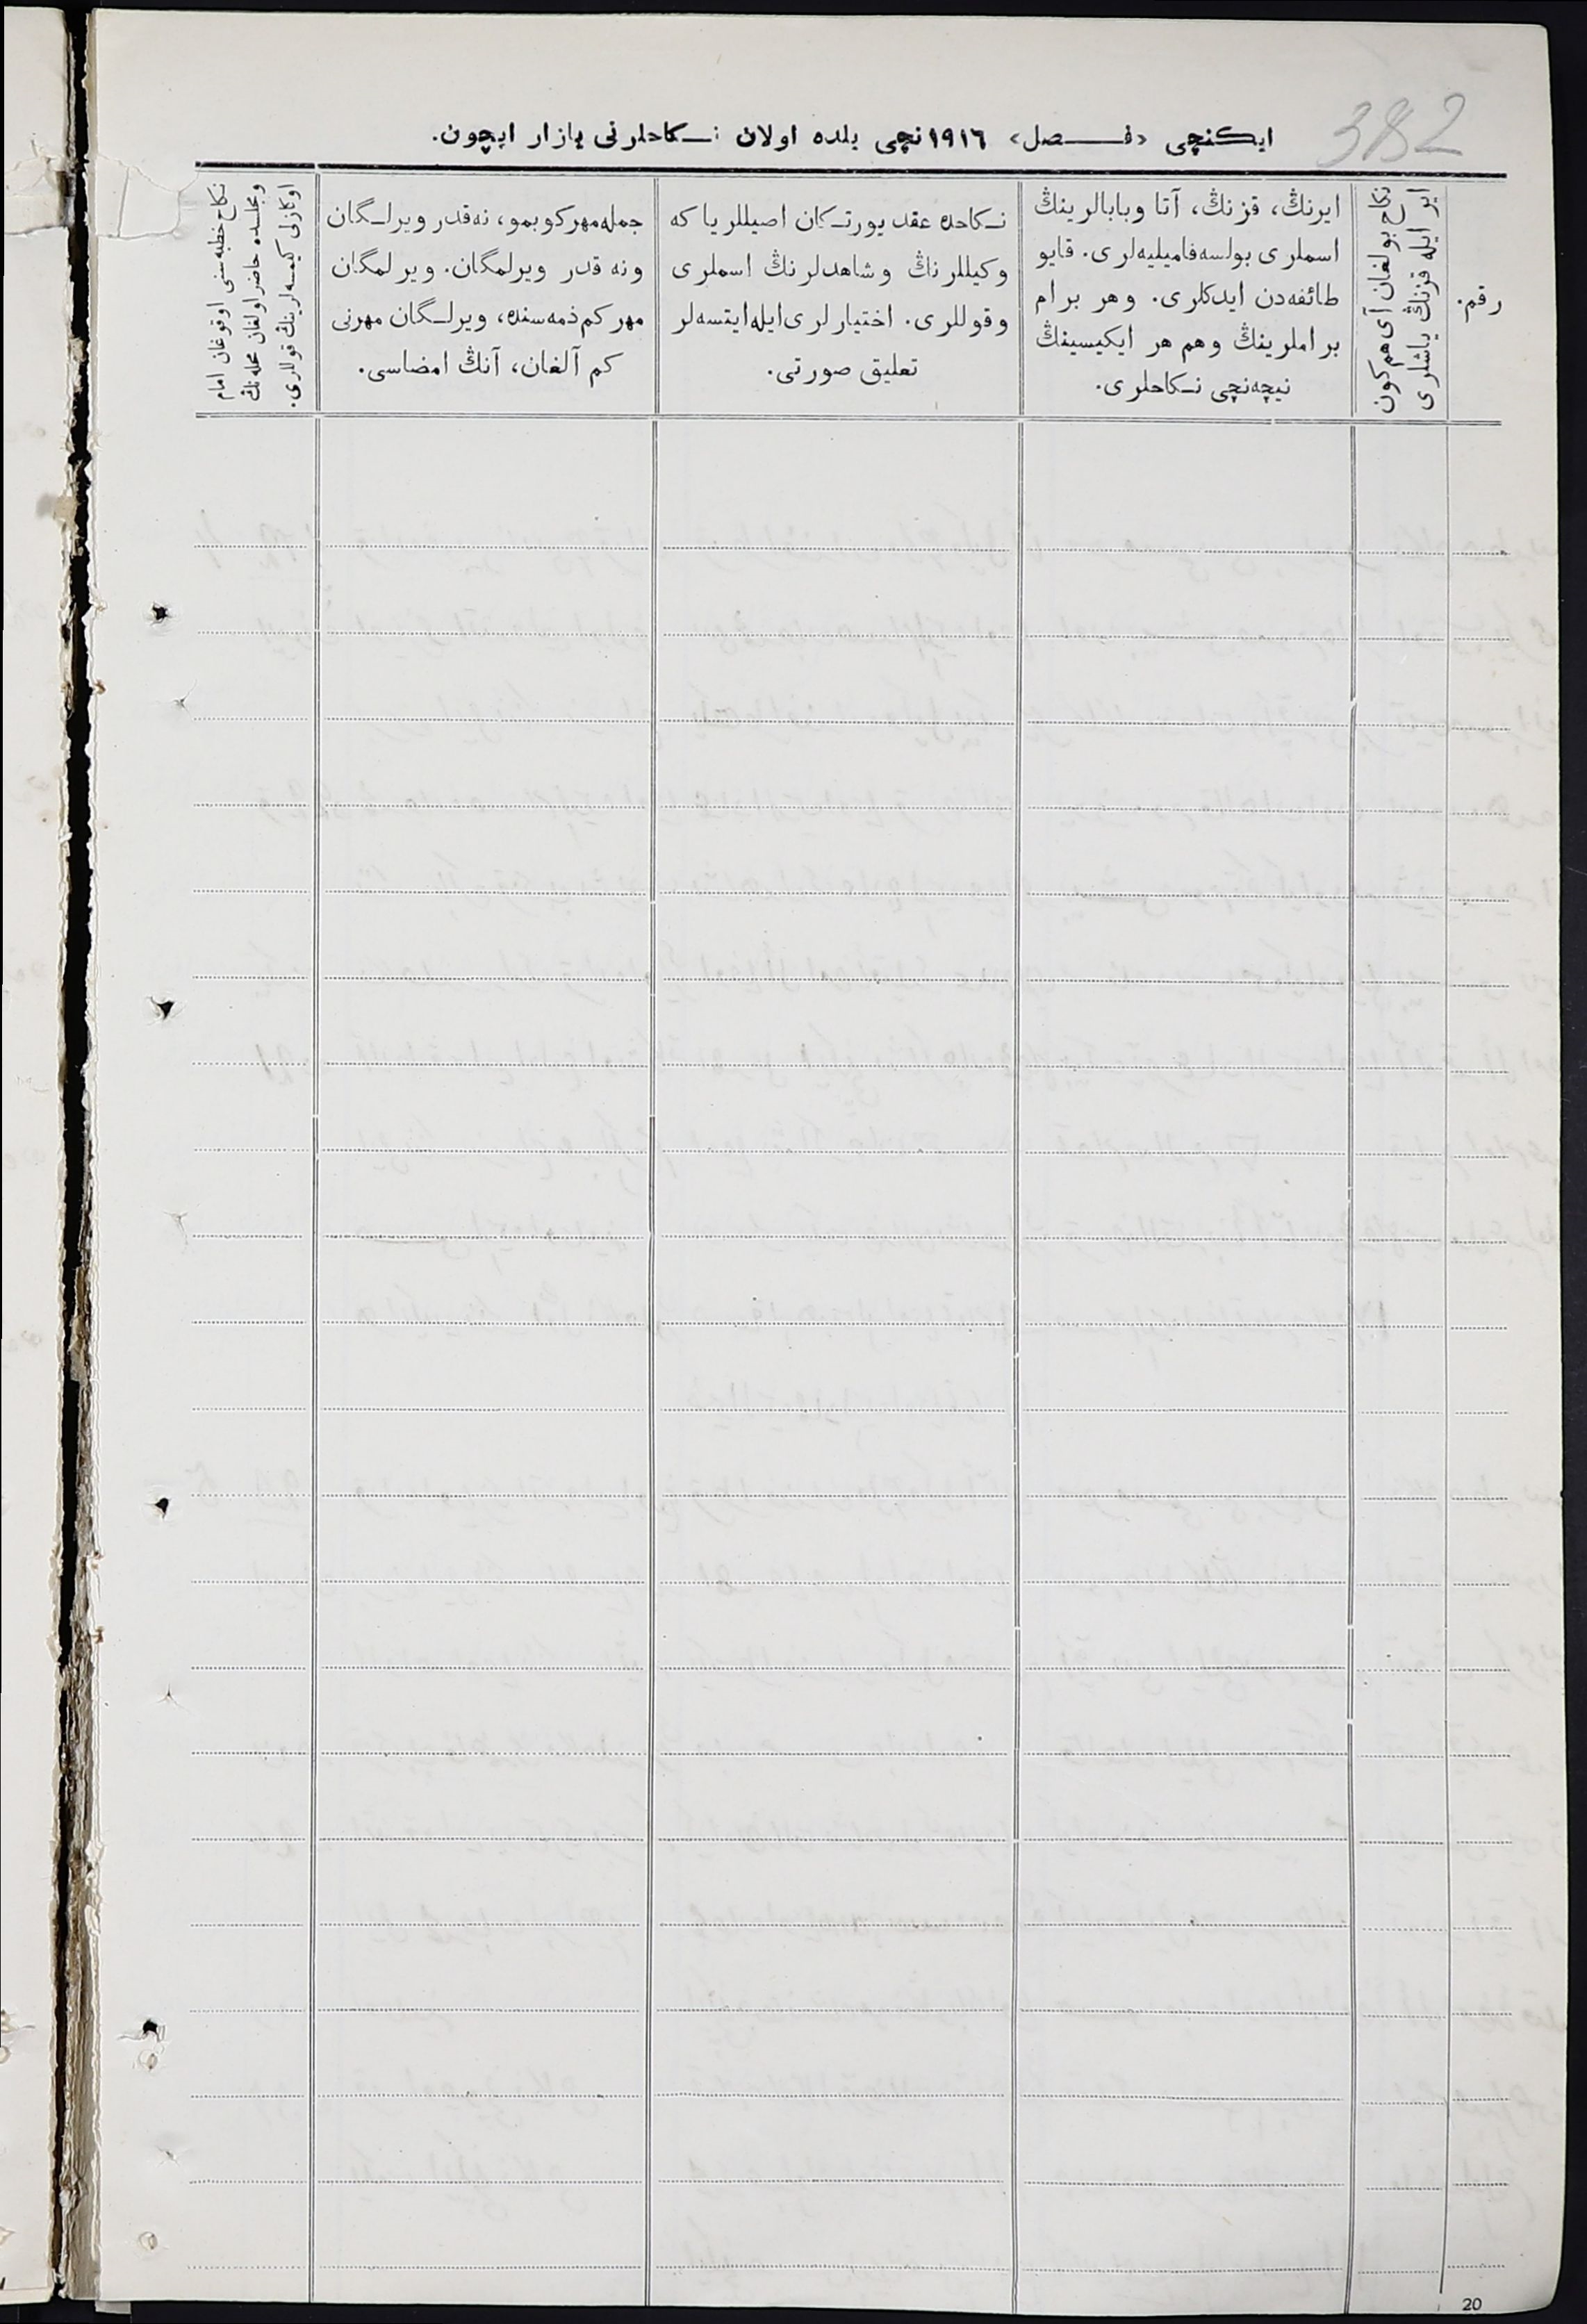 382
ایکنچی «فصل» ١٩١٦نچی یلده اولان نکاحلرنی یازار ایچون.
رقم.
ایر ایله قزنڭ یاشلری
نکاح بولغان آی هم کون
ایرنڭ، قزنڭ، آتا وبابالرینڭ
اسملری بولسه فامیلیه‌لری. قایو
طائفه‌دن ایدکلری. وهر برام
براملرینڭ وهم هر ایکیسینڭ
نیچه‌نچی نکاحلری.
نکاحده عقد یورتکان اصیللر یا که
وکیللرنڭ وشاهدلرنڭ اسملری
وقوللری. اختیارلری ایله ایتسه‌لر
تعلیق صورتی.
جمله مهر کوبمو، نه قدر ویرلگان
ونه قدر ویرلمگان. ویرلمگان
مهر کم ذمه‌سنده، ویرلگان مهرنی
کم آلغان، آنڭ امضاسی.
نکاح خطبه‌سنی اوقوغان امام
ومجلسده حاضر اولغان محله‌نڭ
اوکازلی کیمسه‌لرینڭ قوللری.
20